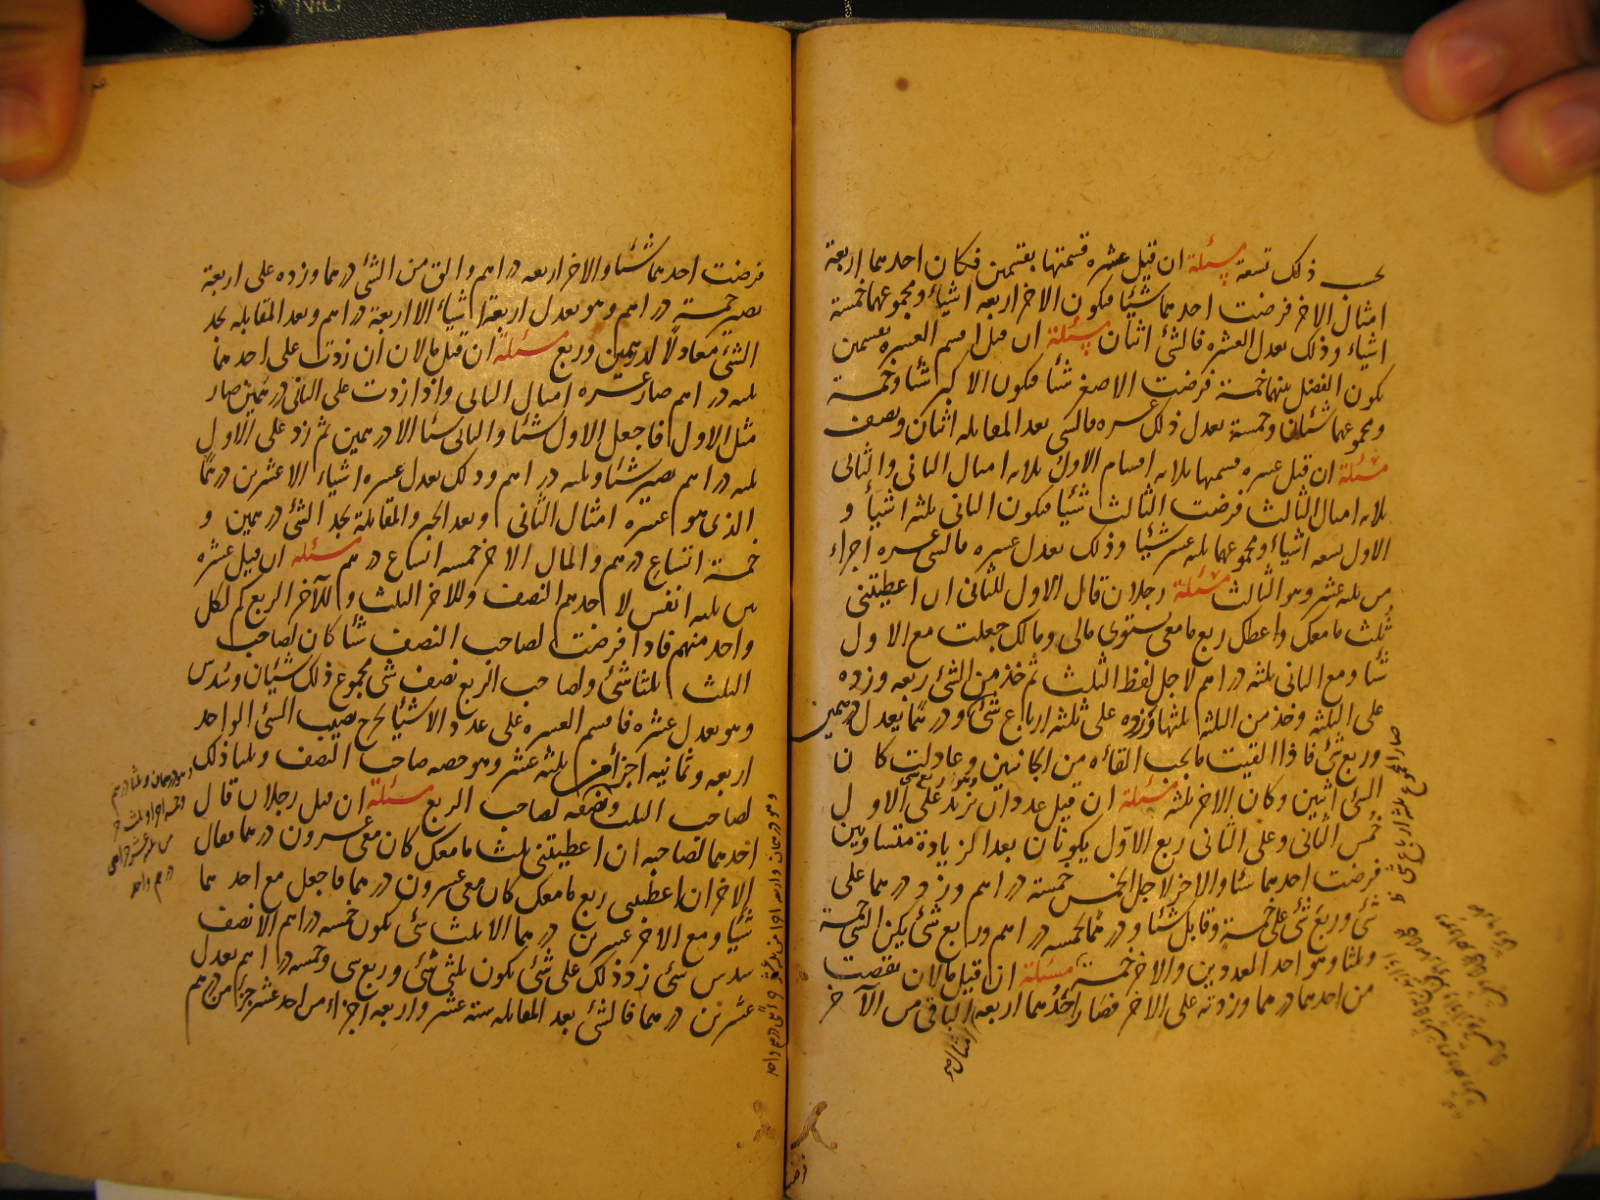 يجب ذلك تسعة مسئلة ان قيل عشرة قسمتها بقسمين فكان احدهما اربعة
امثال الاخر فرضت احدهما شيئا فيكون الاخر اربعة اشياء ومجموعهما خمسة
اشياء وذلك يعدل العشرة فالشئ اثنان مسئلة ان قيل اقسم العشرة بقسمين
يكون الفضل بينهما خمسة فرضت الاصغر شئا فيكون الاكبر شئا وخمسة
ومجموعهما شيئان وخمسة يعدل ذلك عشرة فالشئ بعد المقابلة اثنان ونصف
مسئلة ان قيل عشرة قسمتها بثلاثة اقسام الاول ثلاثة امثال الثانى والثانى
ثلاثة امثال الثالث فرضت الثالث شيئا فيكون الثانى ثلثة اشياء و
الاول تسعة اشياء ومجموعها ثلثة عشر شيئا وذلك يعدل عشرة فالشئ عشرة اجزاء
من ثلثة عشر وهو الثالث مسئلة رجلان قال الاول للثانى ان اعطيتنى
ثلث ما معك واعطك ربع ما معى يستوى مالى ومالك جعلت مع الاول
شئا ومع الثانى ثلثة دراهم لاجل لفظ الثلث ثم خذ من الشئ ربعه وزده
على الثلثة وخذ من الثلثة ثلثها وزده على ثلثة ارباع شئ ودرهما يعدل درهمين
وربع شئ فاذا القيت ما يجب القائه من الجانبين وعادلت كان
الشئ اثنين وكان الاخر ثلثة مسئلة ان قيل عددان تزيد على الاول
خمس الثانى وعلى الثانى ربع الاول يكونان بعد الزيادة متساويين
فرضت احدهما شئا والاخر لاجل الخمس خمسة دراهم وزد درهما على
شئ وربع شئ على خمسة وقابل شئا ودرهما بخمسة دراهم وربع شئ يكن الشئ خمسة
وثلثا وهو احد العددين والاخر خمسة مسئلة ان قيل مالان نقصت
من احدهما درهما وزدته على الاخر فصار احدهما اربعة الباقى من الآخر
امثال
فرضت احدهما شئا والاخر اربعة دراهم والق من الشئ درهما وزده على اربعة
يصير خمسة دراهم وهو يعدل اربعة اشياء الا اربعة دراهم وبعد المقابلة تجد
الشئ معادلا لدرهمين وربع مسئلة ان قيل مالان ان زدت على احدهما
ثلثة دراهم صار عشرة امثال الثانى واذا زدت على الثانى درهمين صار
مثل الاول فاجعل الاول شئا والثانى شئا الا درهمين ثم زد على الاول
ثلثة دراهم يصير شئا وثلثة دراهم وذلك يعدل عشرة اشياء الا عشرين درهما
الذى هو عشرة امثال الثانى وبعد الجبر والمقابلة تجد الشئ درهمين و
خمسة اتساع درهم والمال الاخر خمسة اتساع درهم مسئلة ان قيل عشرة
بين ثلثة انفس لاحدهم النصف وللاخر الثلث وللآخر الربع كم لكل
واحد منهم فاذا فرضت لصاحب النصف شئا كان لصاحب
الثلث ثلثا شئ ولصاحب الربع نصف شئ مجموع ذلك شيئان وسدس
وهو يعدل عشرة فاقسم العشرة على عدد الاشياء يخرج نصيب الشئ الواحد
اربعة وثمانية اجزاء من ثلثة عشر وهو حصة صاحب النصف وثلثا ذلك
لصاحب الثلث ونصفه لصاحب الربع مسئلة ان قيل رجلان قال
احدهما لصاحبه ان اعطيتنى ثلث ما معك كان معى عشرون درهما فقال
الاخر ان اعطيتنى ربع ما معك كان معى عشرون درهما فاجعل مع احدهما
شيئا ومع الاخر عشرين درهما الا ثلث شئ يكون خمسة دراهم الا نصف
سدس شئ زد ذلك على شئ يكون ثلثى شئ وربع شئ وخمسة دراهم يعدل
عشرين درهما فالشئ بعد المقابلة ستة عشر واربعة اجزاء من احد عشر جزءا من درهم
وهو درهمان وثلثا درهم
درهم واحد